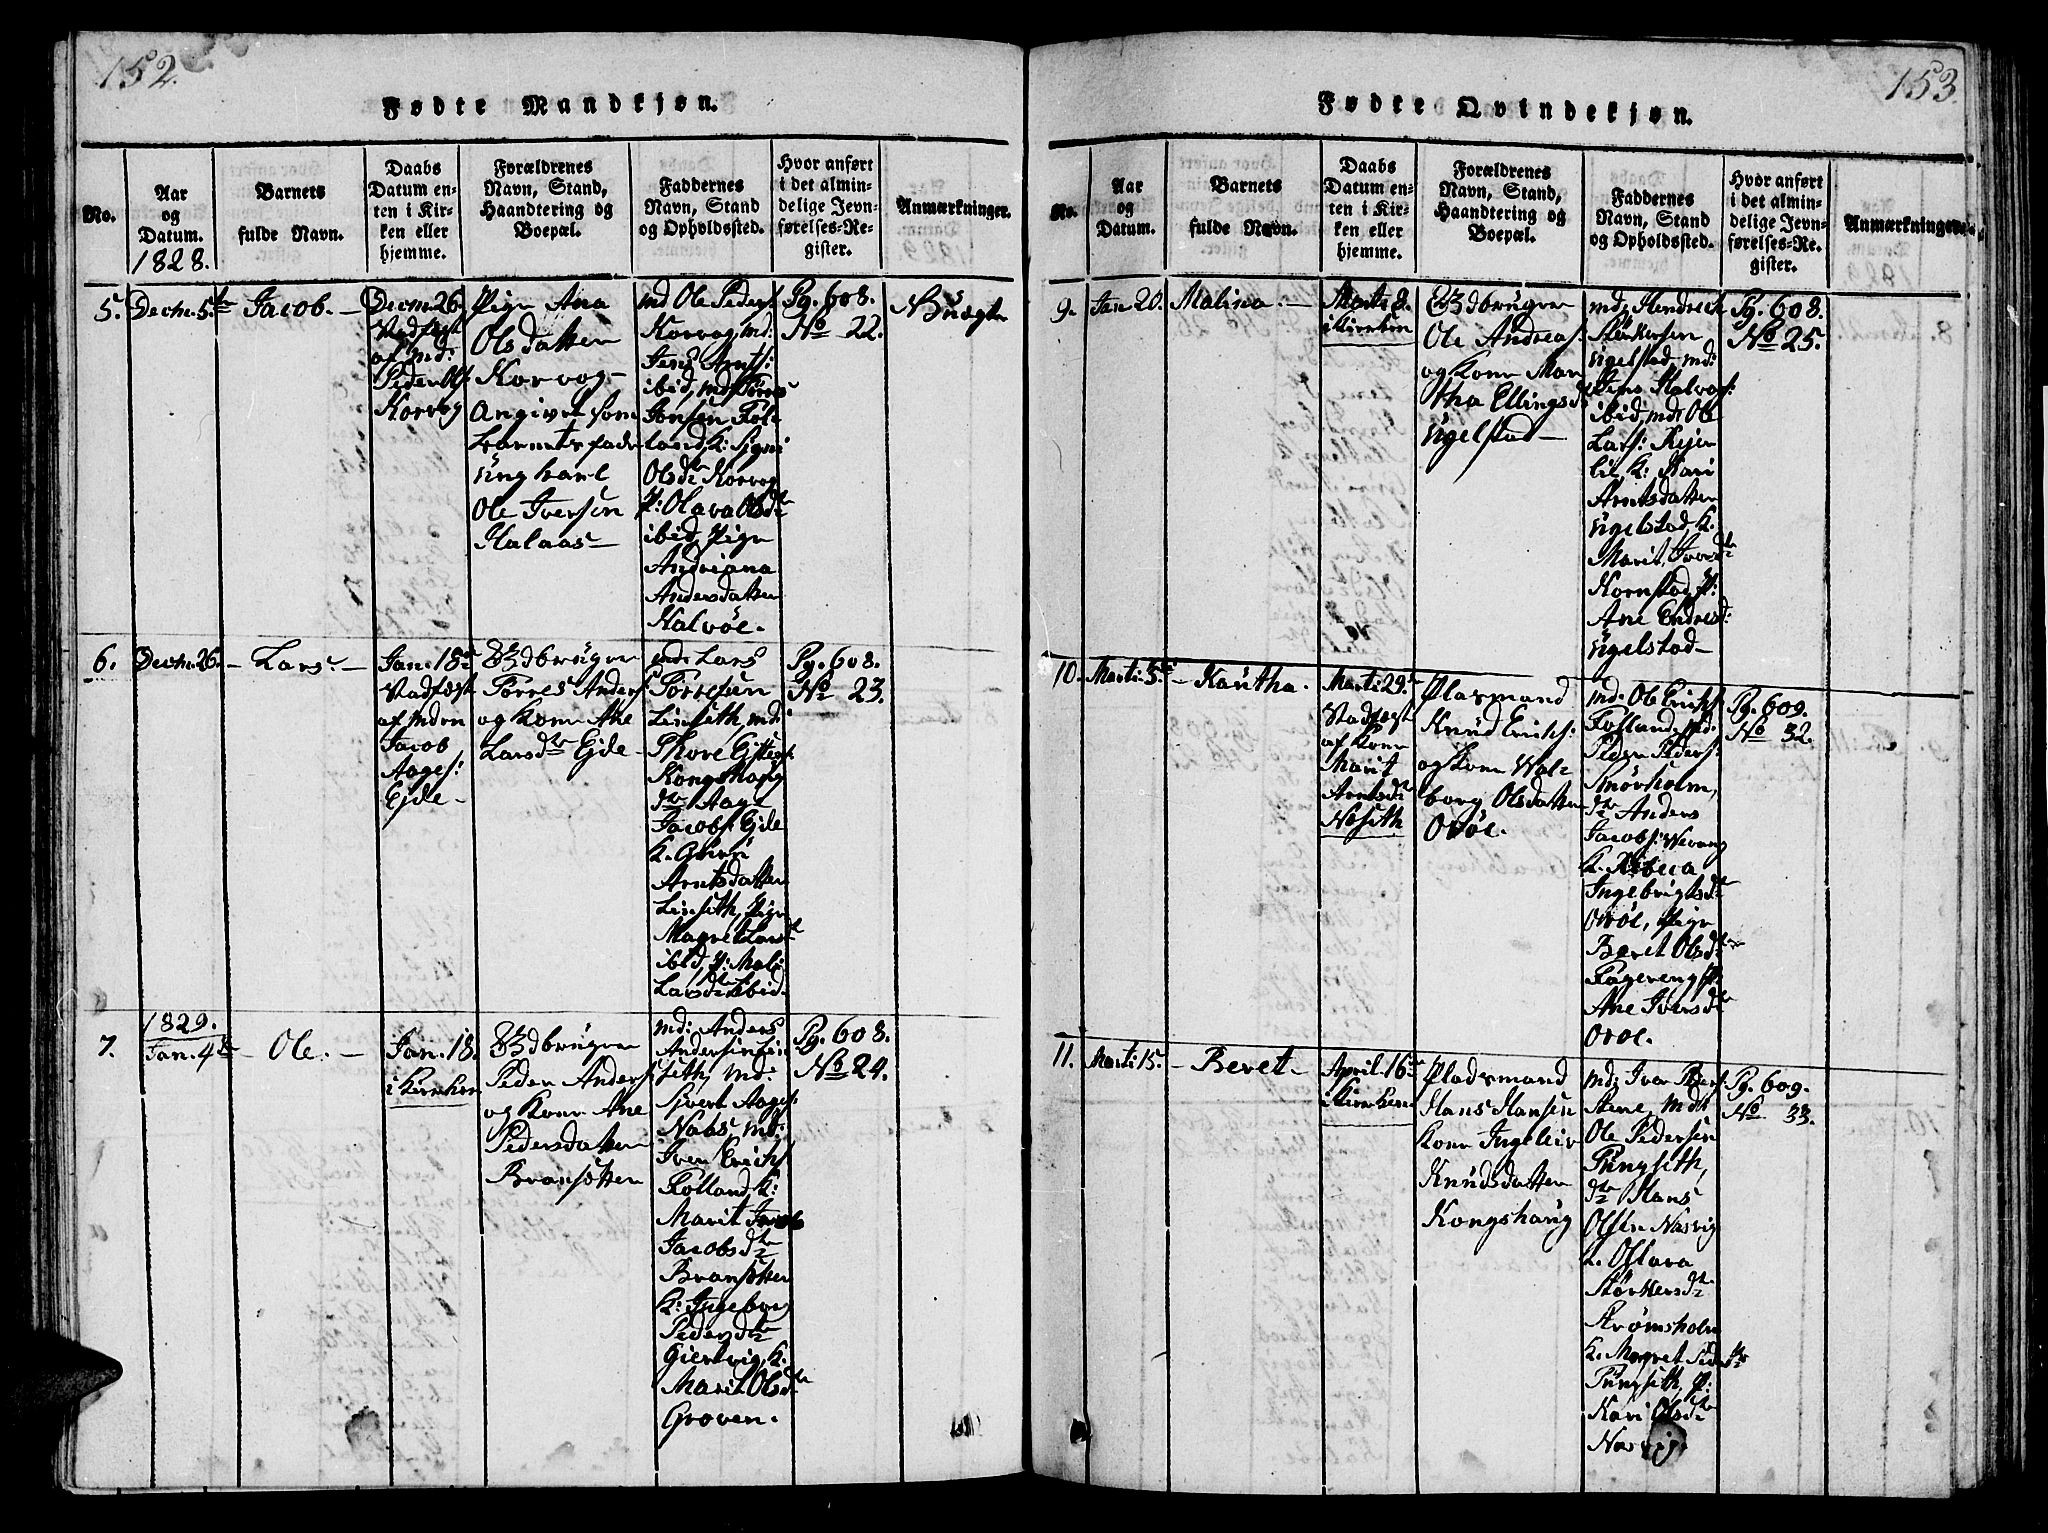 152.
Fødte Mandkjøn.
No.
Aar
og
Datum.
1828.
Barnets
fulde Navn.
Daabs
Datum en-
ten i Kir-
ken eller
hjemme.
Forældrenes
Navn, Stand,
Haandtering og
Boepæl.
Faddernes
Navn, Stand
og Opholdssted.
Hvor anført
i det almin-
delige Jevn-
førelses-Re-
gister.
Anmærkninger.
5.
Decbr. 5te
Jacob. –
Decm. 26
af Md:
Peder Ols:
Korvog
Pige Ane
Olsdatter
Korvog –
Angiven som
barnets fader
Ungkarl
Ole Iversen
Halaas –
md Ole Peders
Korvog, md:
Jens Arnts:
ibid, md: Torres
Jonsen
K: Signi
Olsdr Korvog
P: Olava Olsdr
ibid, Pige
Andriana
Andersdatter
Kalvöe.
Pg. 608.
No 22.
Uægte
6.
Decbr. 26. –
Lars. –
Jan. 18de
af Mden
Jacob
Aages:
Ejde –
Torres Anders:
og Kone Ane
Larsdr Ejde –
md: Lars
Torresen
Linseth, md:
Thore
Kongshaug
dr Aage
Jacobs: Ejde
K.
Arntsdatter
Linseth, Pige
Magret Larsdr
ibid, P: Mali
Larsdr ibid.
Pg. 608.
No 23.
7.
1829.
Jan. 4de –
Ole. –
Jan. 18.
i Kirken
Gdbruger
Peder Anders:
og Kone Ane
Pedersdatter
Bransetter
md: Anders
Andersen Lin
seth, md:
Sivert Aages:
Naas, md:
Iver Erichs
Folland, K:
Marit Jacob
Jacobsdr
Bransetter
K: Ingeborg
Pedersdr
Giertvig, K.
Marit Olsdr
Groven.
Pg. 608.
No 24.
153.
Fødte Qvindekjøn.
No.
Aar
og
Datum.
Barnets
fulde Navn.
Daabs
Datum en-
ten i Kir-
ken eller
hjemme.
Forældrenes
Navn, Stand,
Haandtering og
Boepæl.
Faddernes
Navn, Stand
og Opholdssted.
Hvor anført
i det almin-
delige Jevn-
førelses-Re-
gister.
Anmærkninger.
9.
Jan 20.
Malina. –
Marti 8.
i Kirken
Gdbruger
Ole Andreas:
og Kone Mar
tha Ellingsd
Ugelstad –
md; Hendrich
Størkersen
Ugelstad, md:
Jens Halvors:
ibid, md: Ole
Lars:
K: Mari
Arntsdatter
Ugelstad, K.
Marit Iversdr
Kornstad, P:
Ane Endresd:
Ugelstad –
Pg. 608.
No 25.
10.
Marti. 5te
– Karitha.
Marti 29de
af Kone
Marit
Arntsdr
Neseth
Pladsmand
Knud Erichs:
og Kone Wal
borg Olsdatter
Oröe.
md: Ole Erichs
Folland, md:
Peder Peders:
Smörholm,
dr Anders
Jacobs: Wevang
K. Rebeca
Ingebrigtsdr
Oröe, Pige
Beret Olsdr
Fagereng, P:
Ane Iversdr
Oroe.
Pg. 609.
No 32.
11.
Marti 15.
– Beret –
April. 16de
i Kirken
Pladsmand
Hans Hansen
Kone Ingeleiv
Knudsdatter
Kongshaug
md: Iver Peders:
Stene, Mdr
Ole Pedersen
Tungseth,
dr Hans
Olsen Nasvig
K. Oslava
Störkersdr
Strømsholm
K. Magret Pedersdr
Tungseth, P:
Kari Olsdr
Nasvig.
Pg. 609.
No 33.